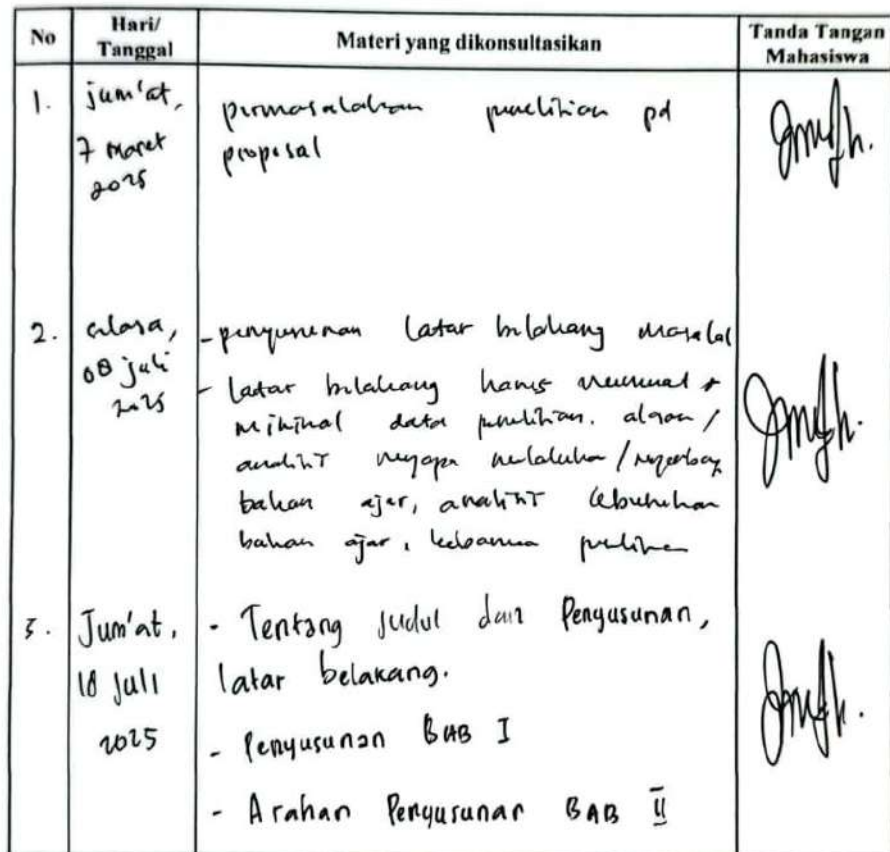 No Hari/Tanggal Materi yang dikonsultasikan Tanda Tangan Mahasiswa
1. jum'at, 7 maret 2025
permasalahan penelitian pd
proposal
2. selasa, 08 juli 2025
- penyusunan latar belakang masalah
- latar belakang harus memuat
minimal data penelitian. alasan /
analisis mengapa melakukan /
bahan ajar, analisis kebutuhan
bahan ajar,
3. Jum'at, 18 Juli 2025
- Tentang Judul dan Penyusunan,
latar belakang.
- Penyusunan BAB I
- Arahan Penyusunan BAB II